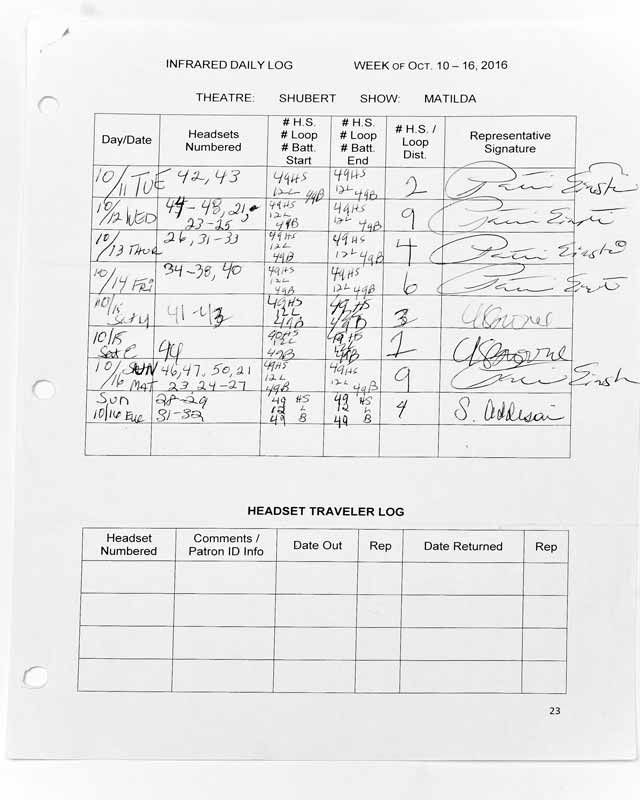 INFRARED DAILY LOG WEEK OF OCT. 10 – 16, 2016
THEATRE: SHUBERT SHOW: MATILDA
Day/Date Headsets Numbered # H.S. # Loop # Batt. Start # H.S. # Loop # Batt. End # H.S. / Loop Dist. Representative Signature
10/11 TUE 42, 43 49HS 12L 49B 49HS 12L 49B 2
10/12 WED 44-48, 21, 23-25 49HS 12L 49B 49HS 12L 49B 9
10/13 THUR 26, 31-33 49HS 12L 49B 49HS 12L 49B 4
10/14 FRI 34-38, 40 49HS 12L 49B 49HS 12L 49B 6
10/15 Sat M 41-43 49HS 12L 49B 49HS 12L 49B 3
10/15 Sat E 44 49HS 12L 49B 49HS 12L 49B 1
10/16 SUN MAT 46, 47, 50, 21 23 24-27 49HS 12L 49B 49HS 12L 49B 9
Sun 10/16 Eve 28-29 31-32 49 HS 12 L 49 B 49 HS 12 L 49 B 4 S. Addison
HEADSET TRAVELER LOG
Headset Numbered Comments / Patron ID Info Date Out Rep Date Returned Rep
23